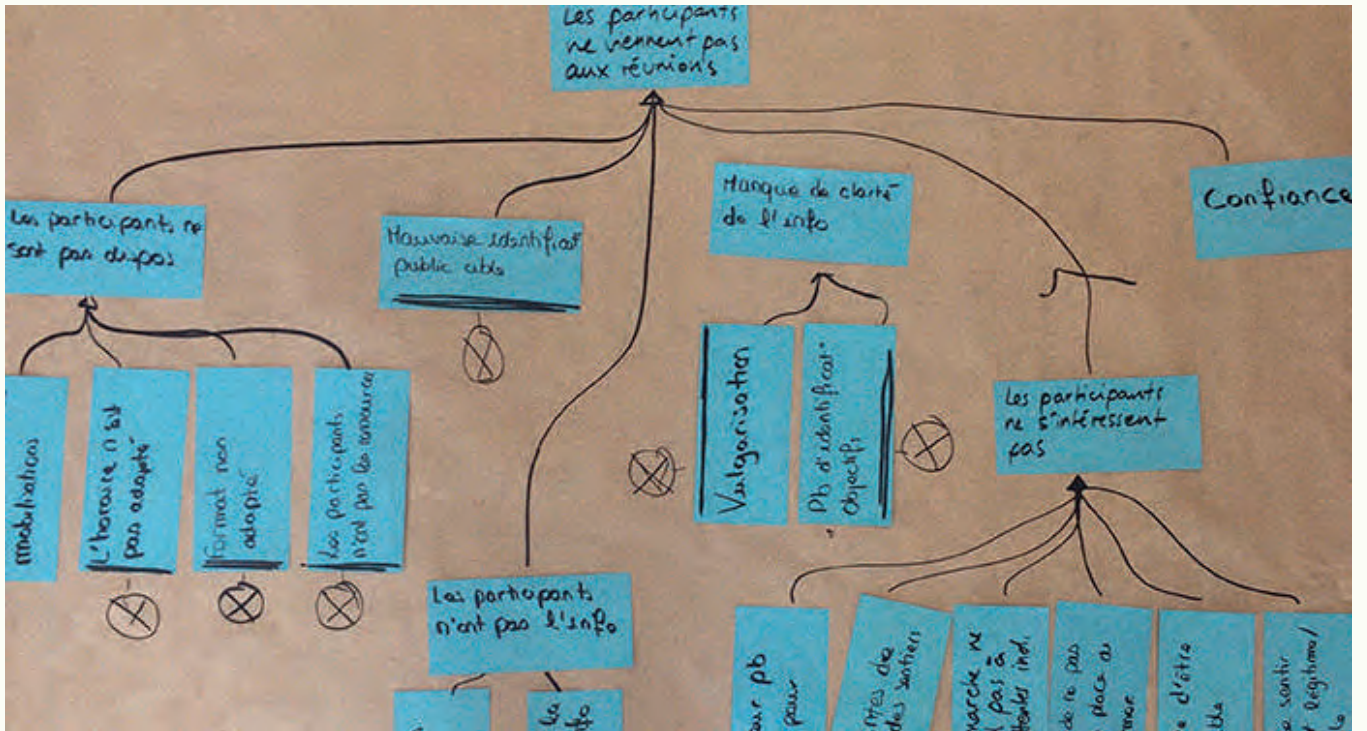 Les participants
ne viennent pas
aux réunions
Les participants ne
sont pas dispos
Mauvaise identificat°
public cible
Manque de clarté
de l'info
Confiance
mobilisations
L'horaire n'est
pas adapté
Format non
adapté
Les participants
n'ont pas les ressources
Vulgarisation
Pb d'identificat°
objectifs
Les participants
ne s'intéressent
pas
Les participants
n'ont pas l'info
pb
pour
des
des sentiers
marche ne
pas à
ind.
de ne pas
place de
d'être
sentir
légitime/